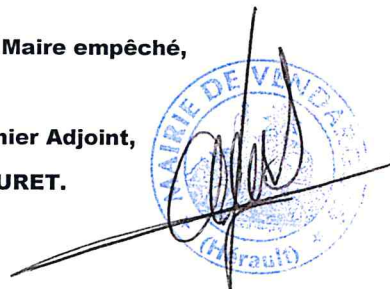 Maire empêché,
nier Adjoint,
URET.
MAIRIE DE VENDAR
(Hérault)